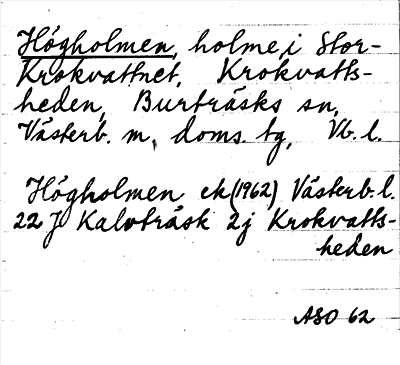 Högholmen, holme i Stor-
Krokvattnet, Krokvatts-
heden, Burträsks sn,
Västerb. m. doms. tg, Vb. l.
Högholmen ek (1962) Västerb. l.
22 J Kalvträsk 2j Krokvatts-
heden
ASO 62